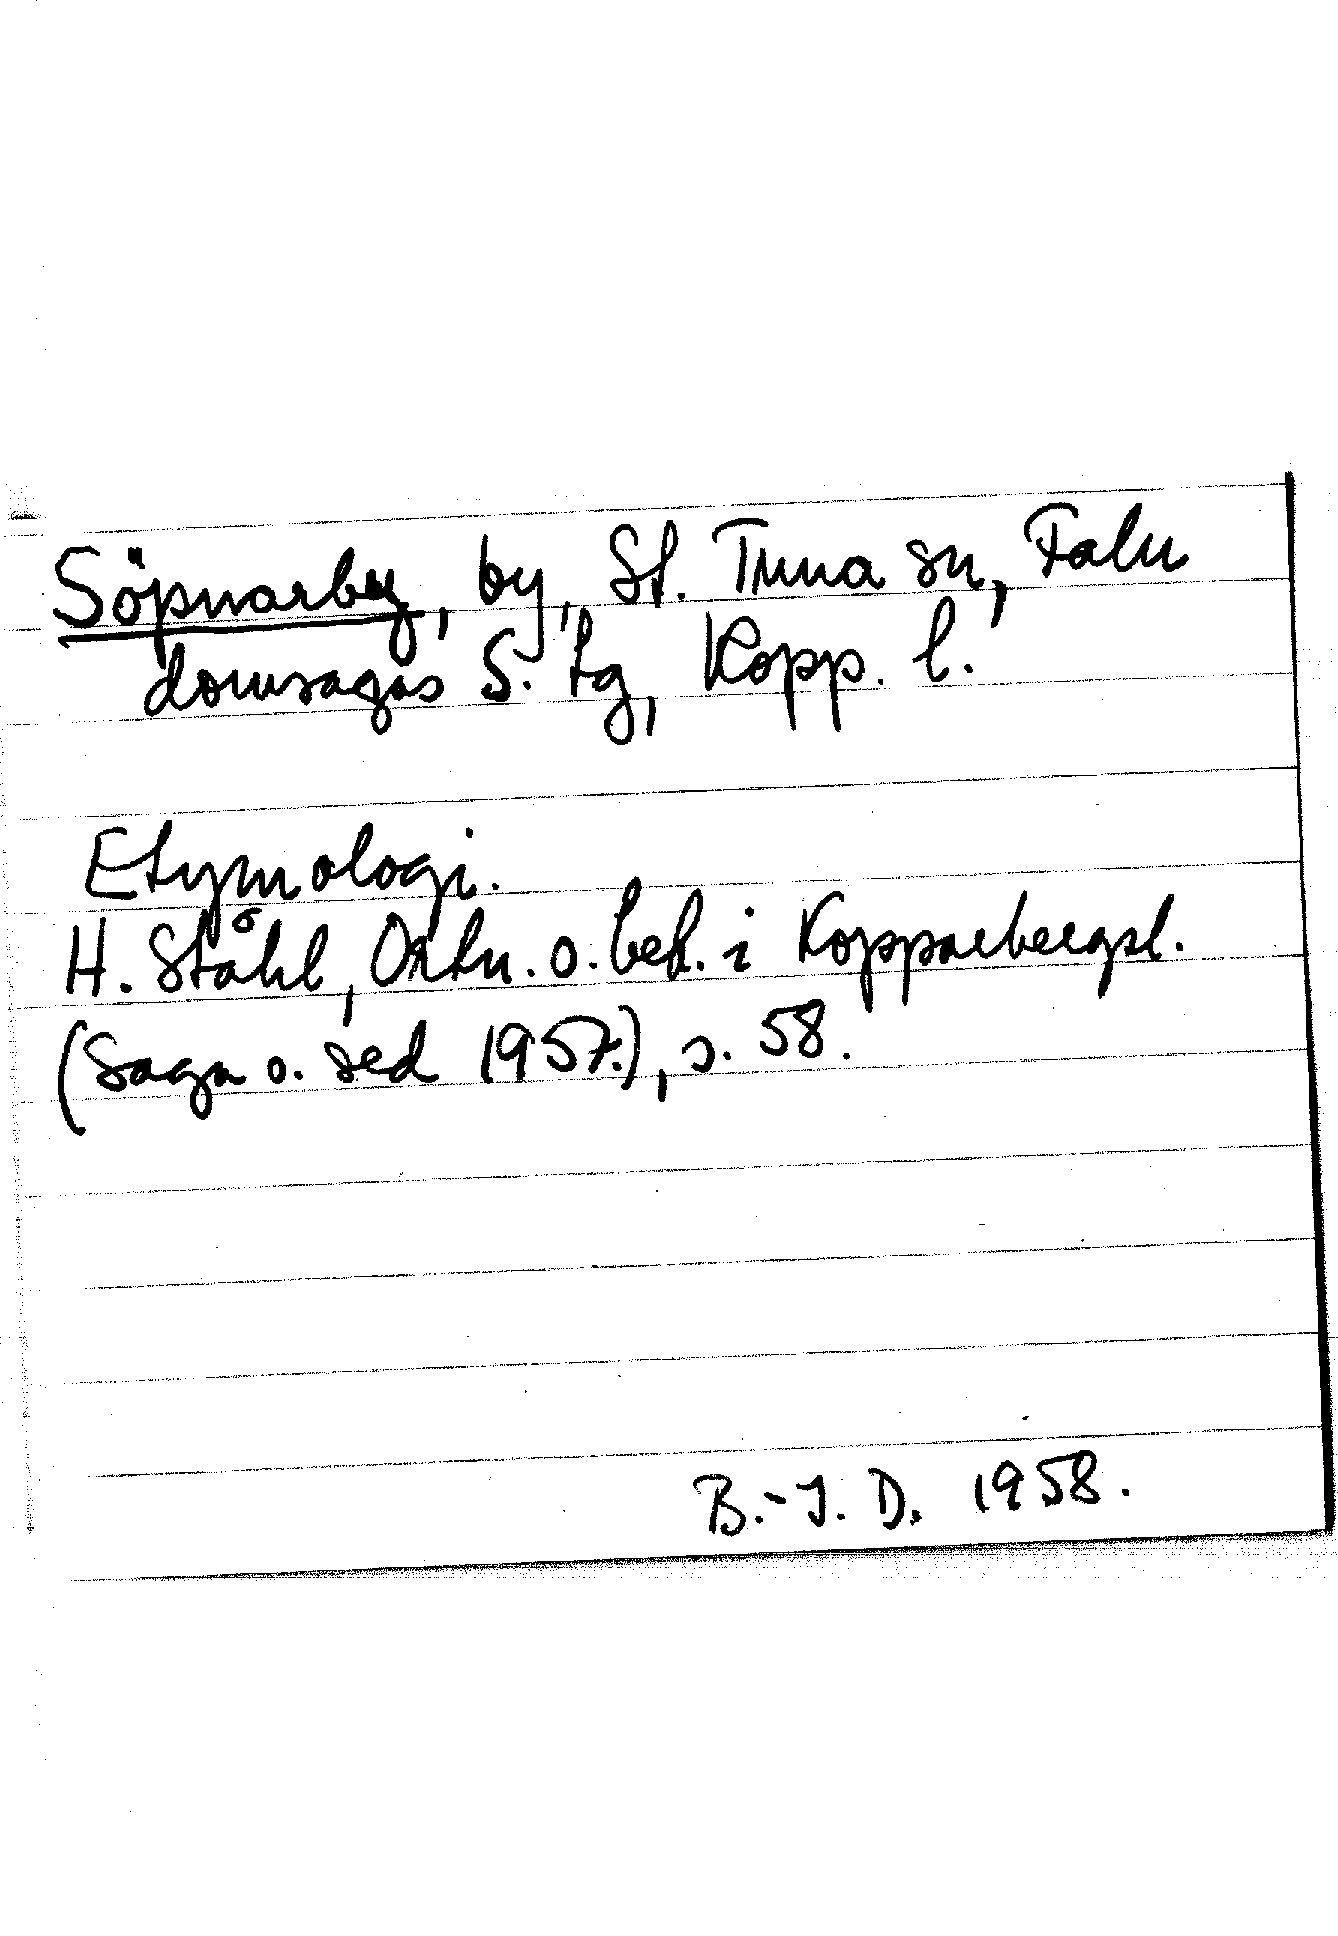 Söpnarby, by, St. Tuna sn, Falu
domsagas S. tg, Kopp. l.
Etymologi.
H. Ståhl, Ortn. o. beb. i Kopparbergsl.
(Saga o. sed 1957.), s. 58.
B.-I. D. 1958.